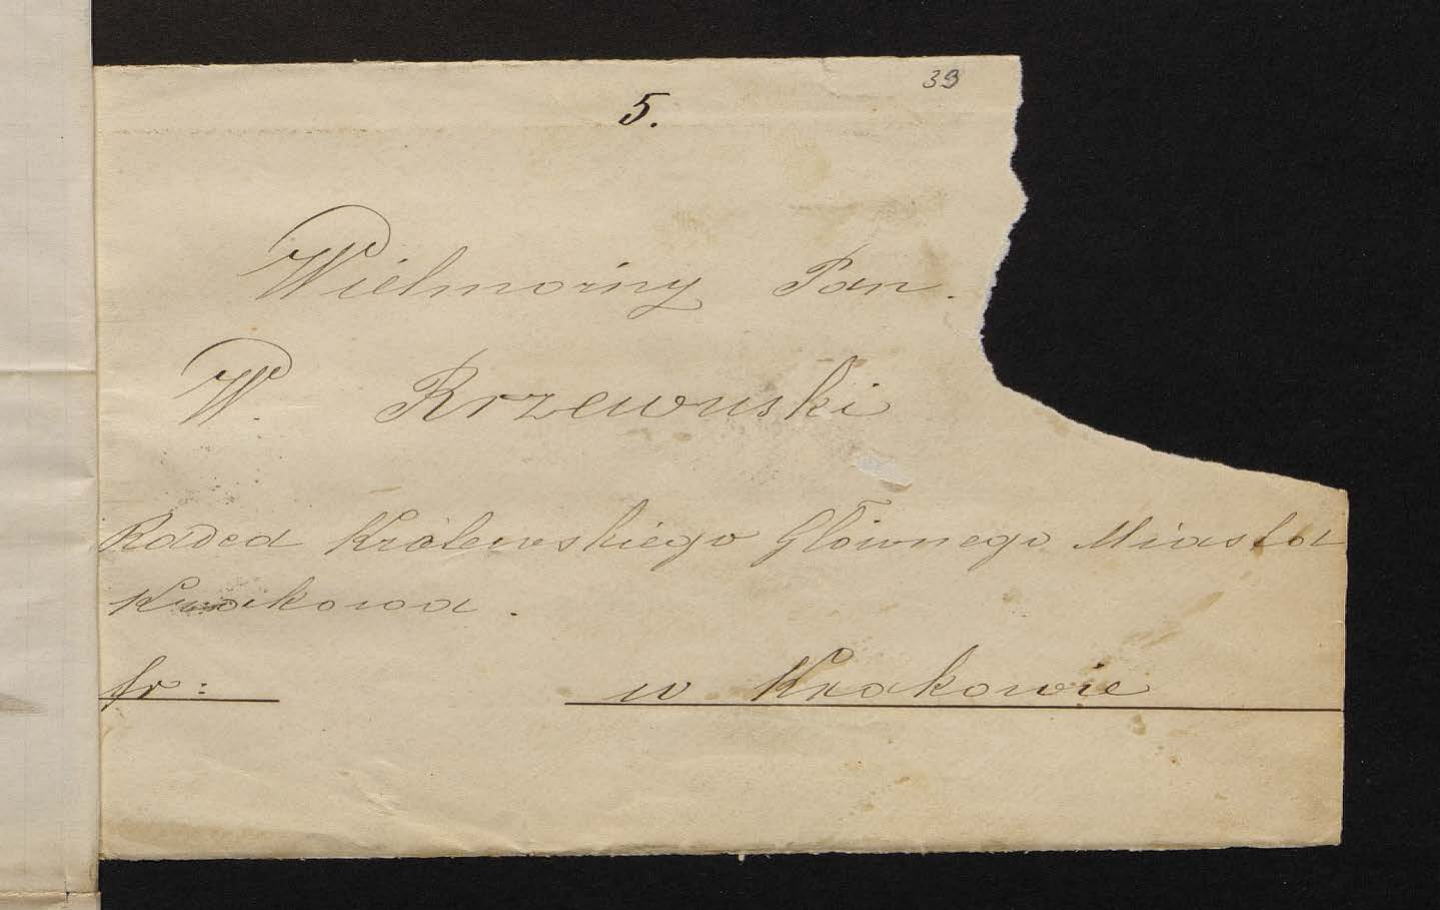 39
5.
Wielmożny Pan.
W. Rzewuski
Radca Królewskiego Głównego Miasta
Krakowa.
fr:
w Krakowie